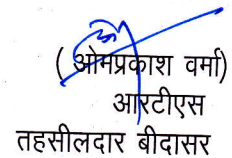 (ओमप्रकाश वर्मा)
आरटीएस
तहसीलदार बीदासर